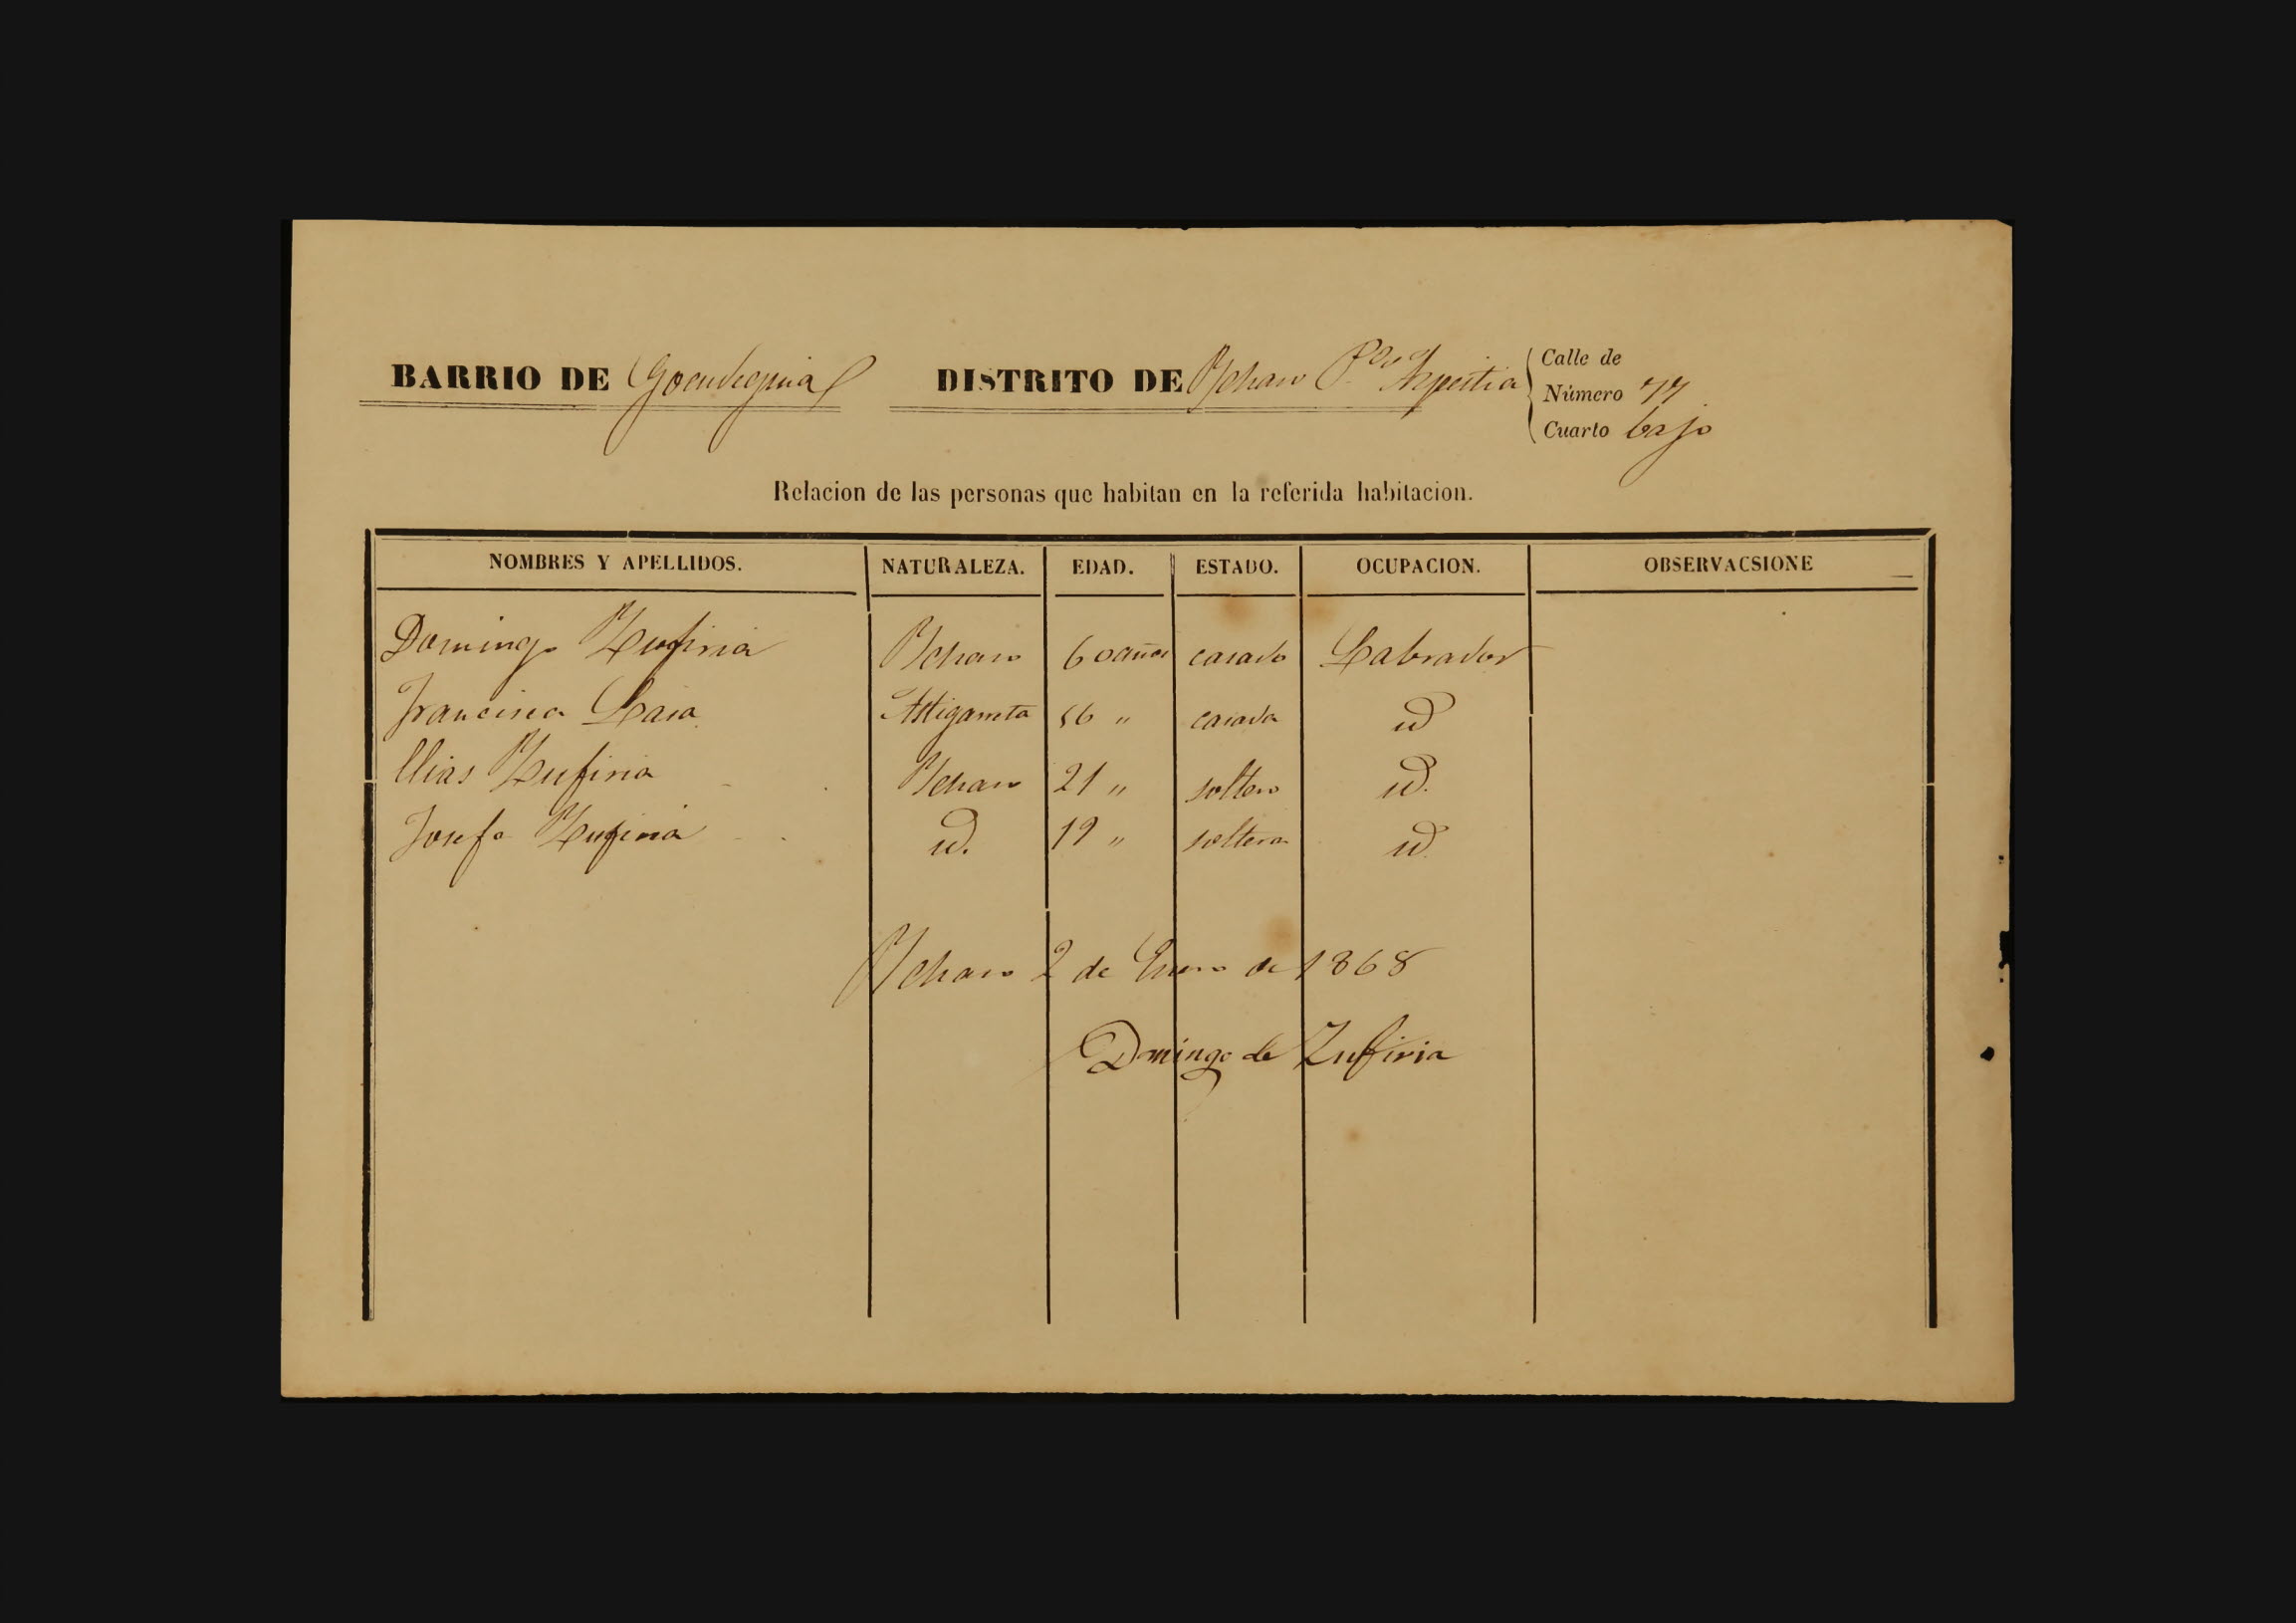 BARRIO DE Goendeguia DISTRITO DE Ychaso Pdo Azpeitia Calle de
Número 77
Cuarto bajo
Relacion de las personas que habitan en la referida habitacion.
NOMBRES Y APELLIDOS. NATURALEZA. EDAD. ESTADO. OCUPACION. OBSERVACSIONE
Domingo Zufiria Ychaso 60 años casado Labrador
Francisca Lasa Astigarreta 56 " casada id
Elias Zufiria Ychaso 21 " soltero id.
Josefa Zufiria id. 19 " soltera id.
Ychaso 2 de Enero de 1868
Domingo de Zufiria